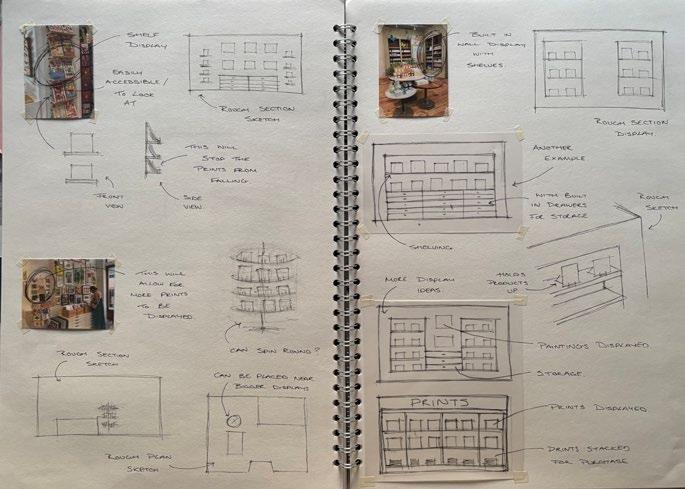 SHELF
DISPLAY
EASILY
ACCESSIBLE/
TO LOOK
AT
ROUGH SECTION
SKETCH
FRONT
VIEW
THIS WILL
STOP THE
PRINTS FROM
FALLING.
SIDE
VIEW
THIS WILL
ALLOW FOR
MORE PRINTS
TO BE
DISPLAYED.
CAN SPIN ROUND?
ROUGH SECTION
SKETCH
CAN BE PLACED NEAR
BIGGER DISPLAYS
ROUGH PLAN
SKETCH
BUILT IN
WALL DISPLAY
WITH
SHELVES
ROUGH SECTION
DISPLAY
ANOTHER
EXAMPLE
WITH BUILT
IN DRAWERS
FOR STORAGE
SHELVING
ROUGH
SKETCH
HOLDS
PRODUCTS
UP
MORE DISPLAY
IDEAS.
PAINTINGS DISPLAYED
STORAGE
PRINTS
PRINTS DISPLAYED
PRINTS STACKED
FOR PURCHASE